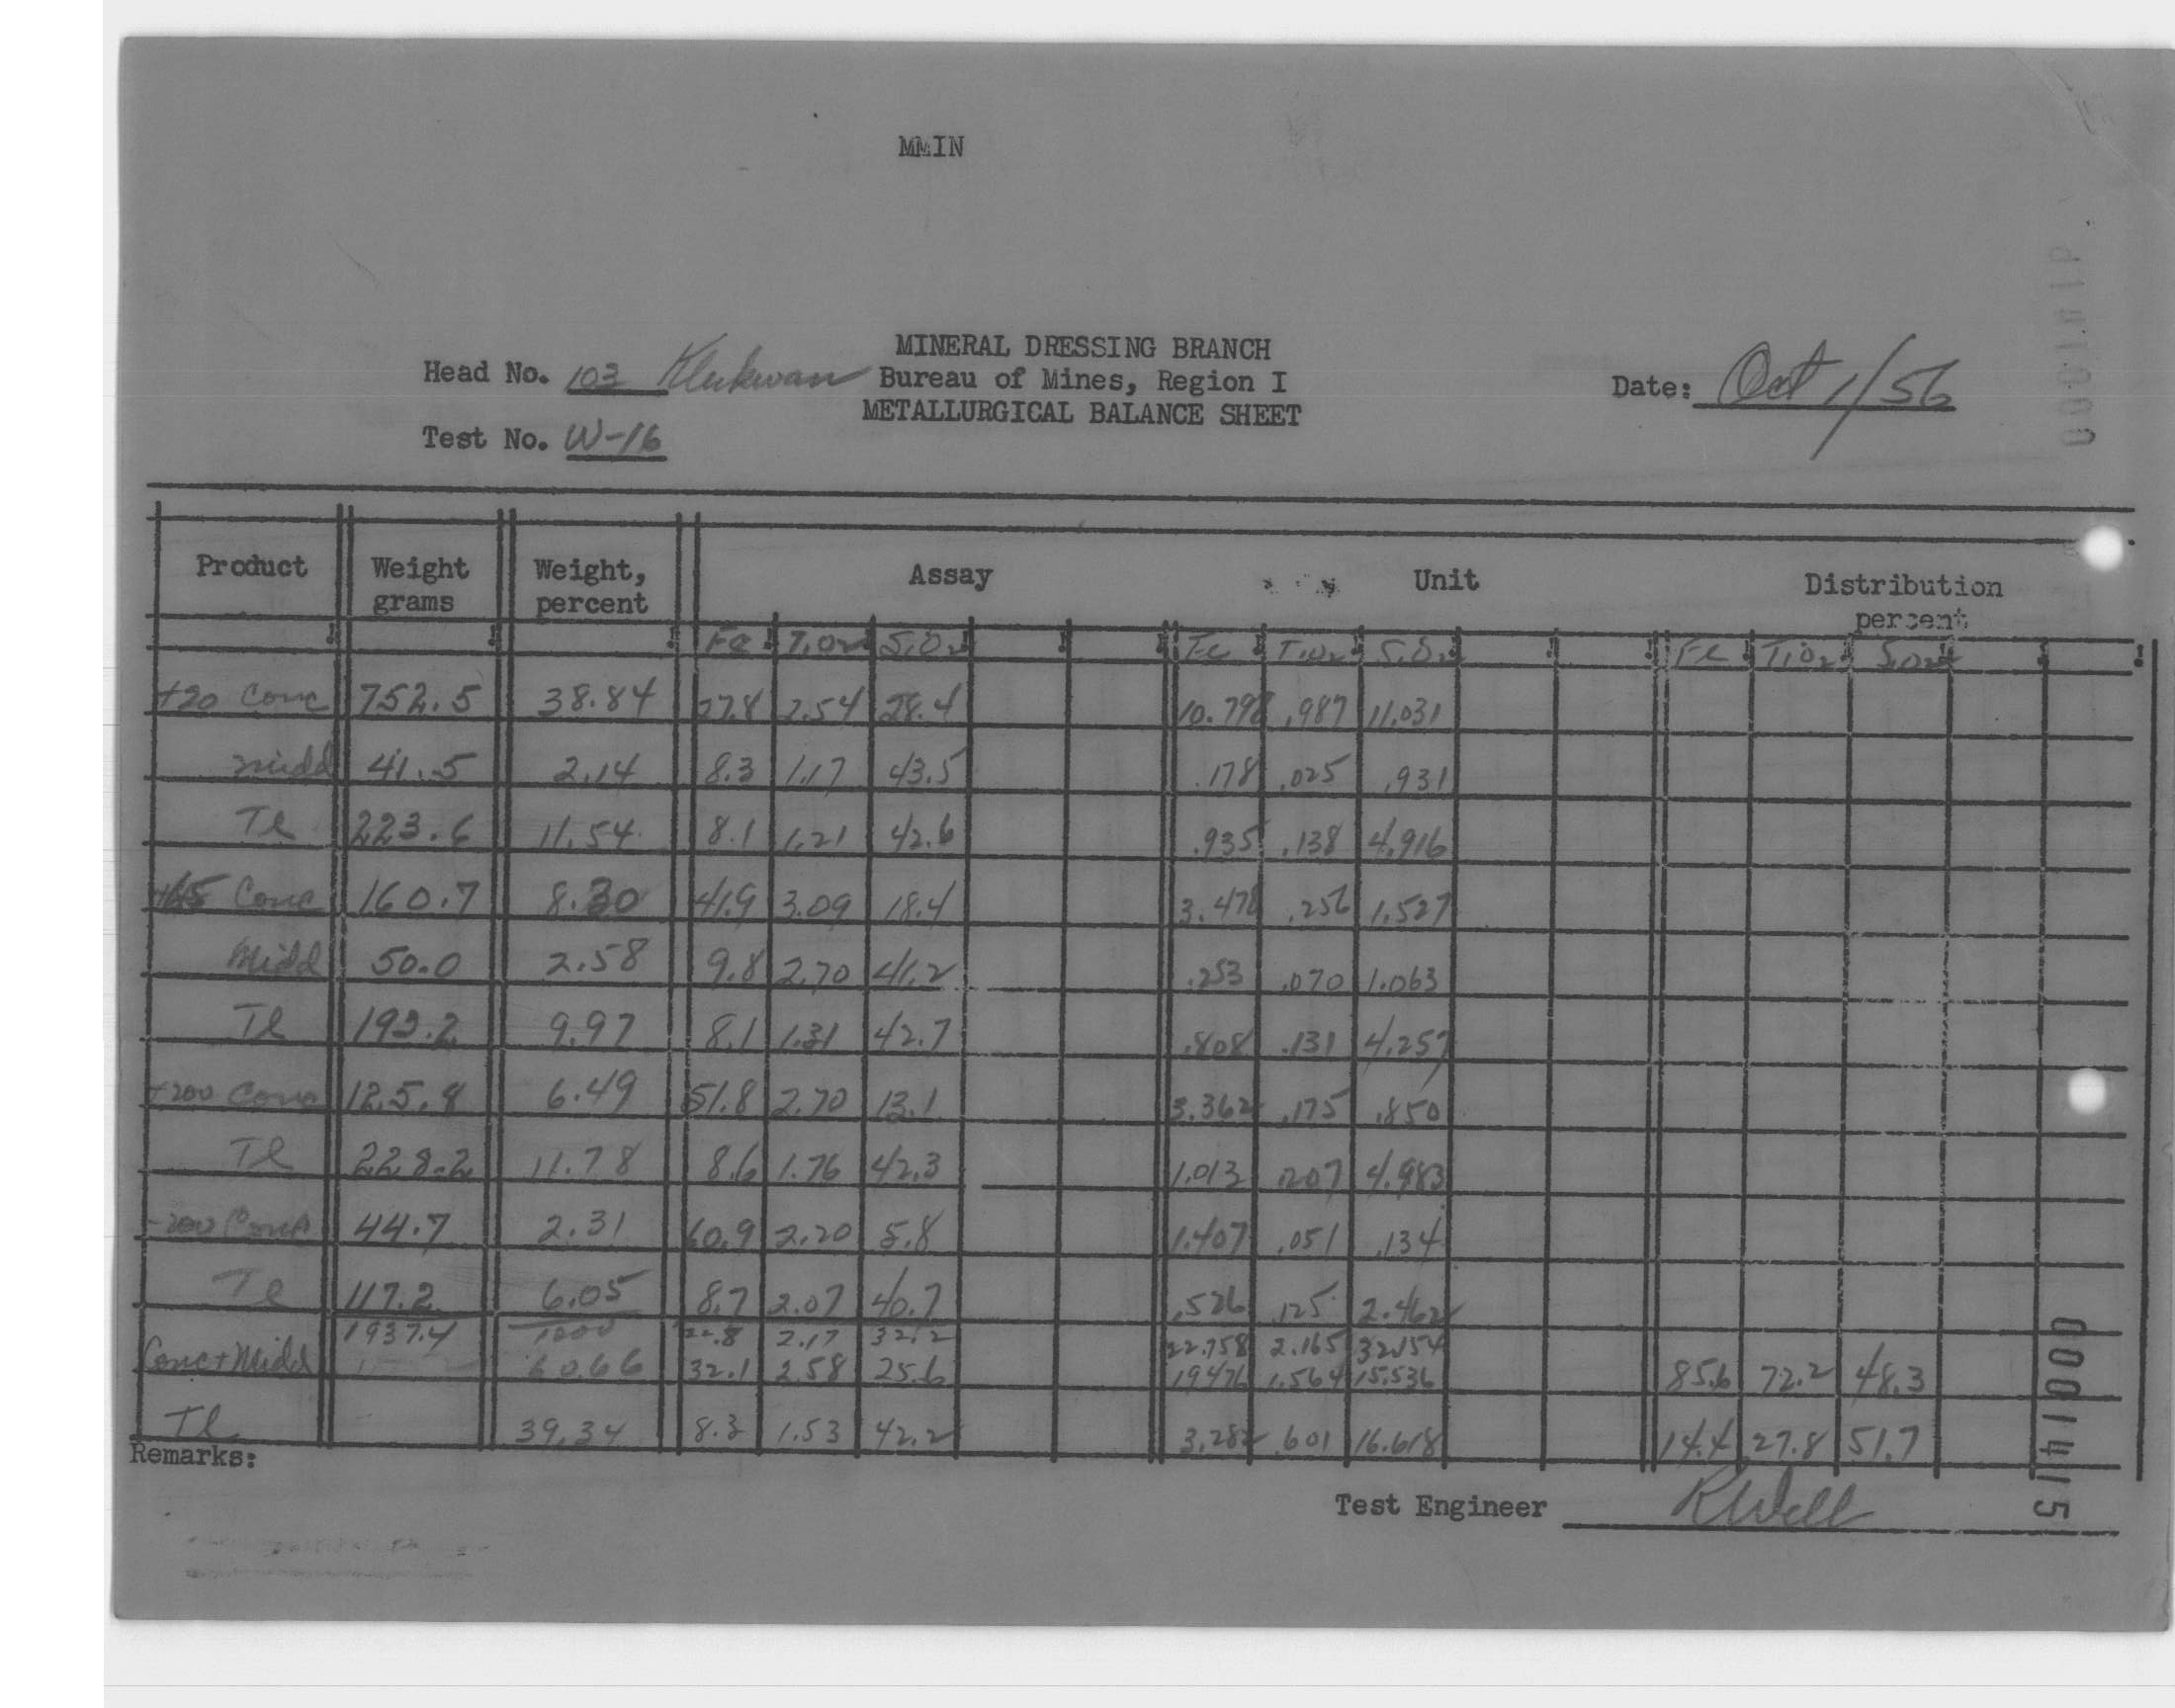 MMIN
MINERAL DRESSING BRANCH
Head No. 103 Klukwan Bureau of Mines, Region I Date: Oct 1/56
METALLURGICAL BALANCE SHEET
Test No. W-16
Product Weight grams Weight, percent Assay Unit Distribution percent
Fe TiO2 SiO2 Fe TiO2 SiO2 Fe TiO2 SiO2
+20 Conc 752.5 38.84 27.8 2.54 28.4 10.798 .987 11.031
Midd 41.5 2.14 8.3 1.17 43.5 .178 .025 .931
Tl 223.6 11.54 8.1 1.21 42.6 .935 .138 4.916
+65 Conc 160.7 8.30 41.9 3.09 18.4 3.478 .256 1.527
Midd 50.0 2.58 9.8 2.70 41.2 .253 .070 1.063
Tl 193.2 9.97 8.1 1.31 42.7 .808 .131 4.257
+200 Conc 125.8 6.49 51.8 2.70 13.1 3.362 .175 .850
Tl 228.2 11.78 8.6 1.76 42.3 1.013 .207 4.983
-200 Conc 44.7 2.31 60.9 2.20 5.8 1.407 .051 .134
Tl 117.2 6.05 8.7 2.07 40.7 .526 .125 2.462
1937.4 1000 22.8 2.17 32.2 22.758 2.165 32.154
Conc+Midd 60.66 32.1 2.58 25.6 19.476 1.564 15.536 85.6 72.2 48.3
Tl 39.34 8.3 1.53 42.2 3.282 .601 16.618 14.4 27.8 51.7
Remarks:
Test Engineer RWell
0001415